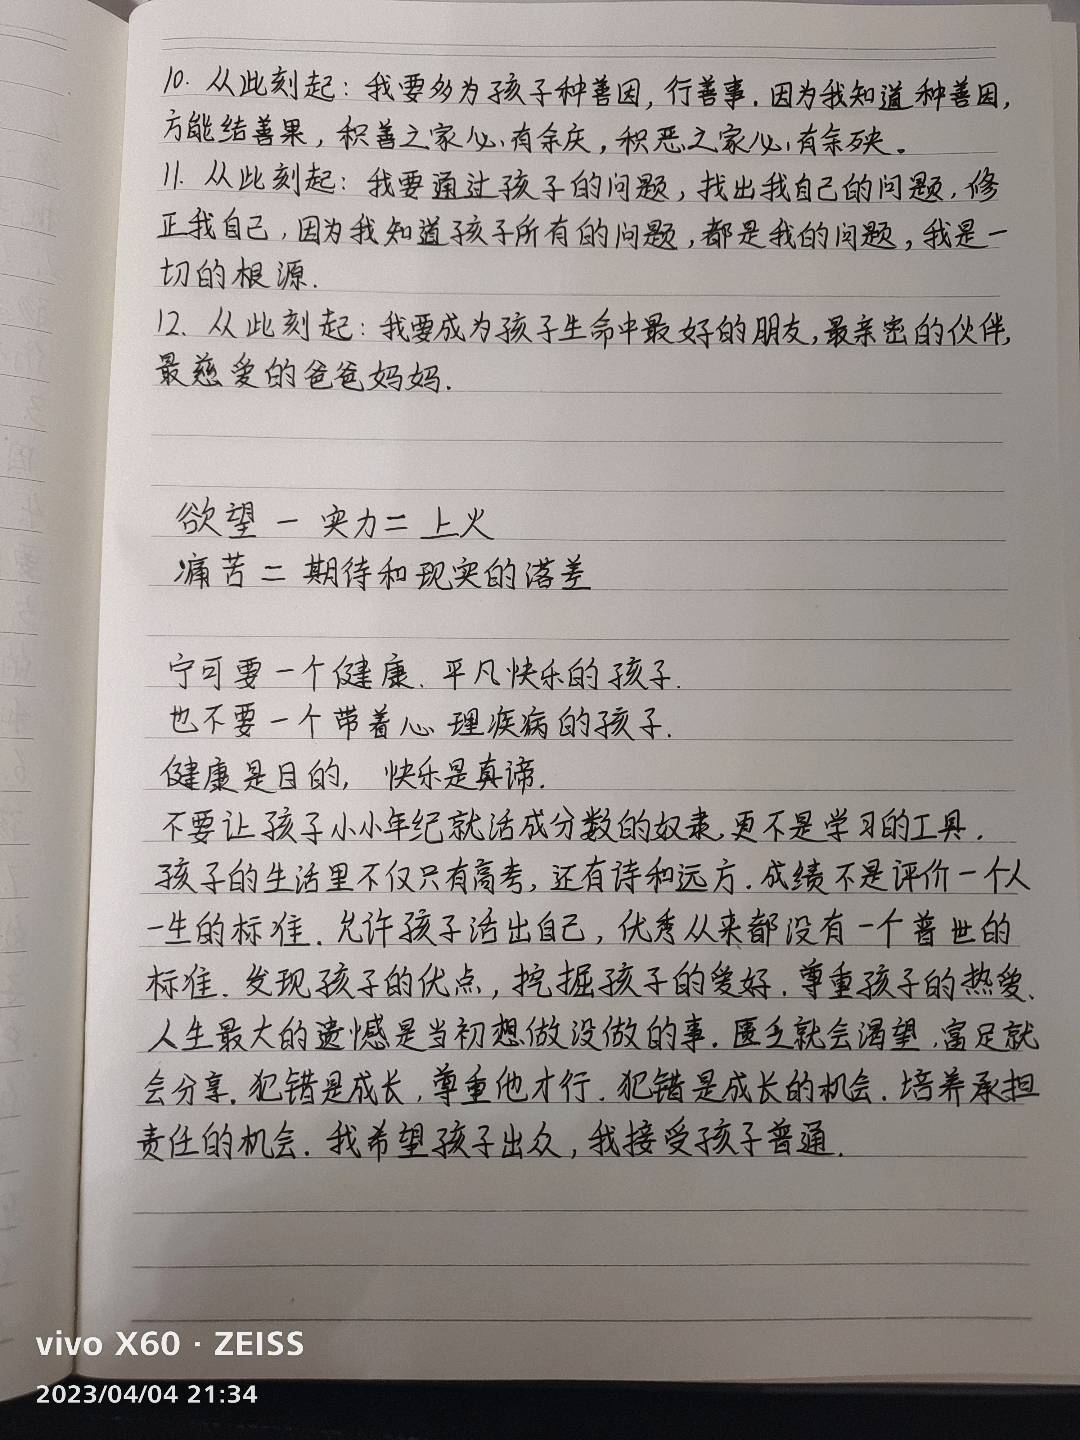 10. 从此刻起：我要多为孩子种善因，行善事.因为我知道种善因，
方能结善果，积善之家必有余庆，积恶之家必有余殃。
11. 从此刻起：我要通过孩子的问题，找出我自己的问题.修
正我自己.因为我知道孩子所有的问题，都是我的问题，我是一
切的根源.
12. 从此刻起：我要成为孩子生命中最好的朋友，最亲密的伙伴，
最慈爱的爸爸妈妈.
欲望 － 实力＝ 上火
痛苦＝ 期待和现实的落差
宁可要一个健康.平凡快乐的孩子.
也不要一个带着心理疾病的孩子.
健康是目的，快乐是真谛.
不要让孩子小小年纪就活成分数的奴隶，更不是学习的工具.
孩子的生活里不仅只有高考，还有诗和远方.成绩不是评价一个人
一生的标准.允许孩子活出自己，优秀从来都没有一个普世的
标准.发现孩子的优点，挖掘孩子的爱好.尊重孩子的热爱、
人生最大的遗憾是当初想做没做的事.匮乏就会渴望，富足就
会分享.犯错是成长，尊重他才行.犯错是成长的机会.培养承担
责任的机会.我希望孩子出众，我接受孩子普通.
vivo X60 · ZEISS
2023/04/04 21:34